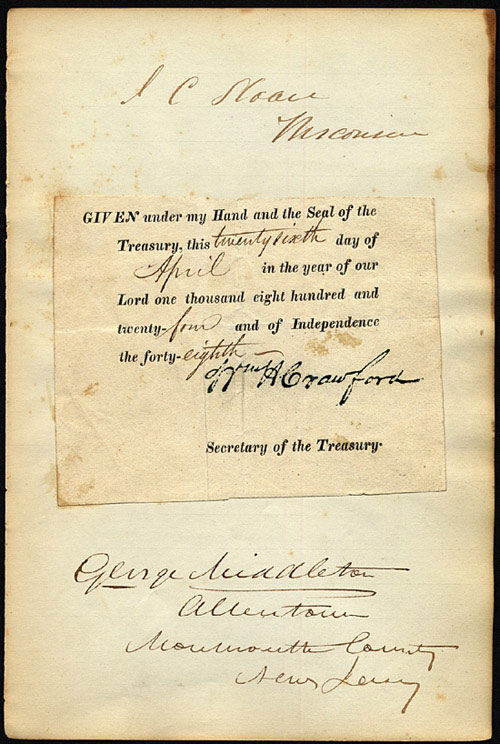 I C Sloan
Wisconsin
GIVEN under my Hand and the Seal of the
Treasury, this twenty sixth day of
April in the year of our
Lord one thousand eight hundred and
twenty-four and of Independence
the forty-eighth
Wm H Crawford
Secretary of the Treasury.
George Middleton
Allentown
Monmouth County
New Jersey